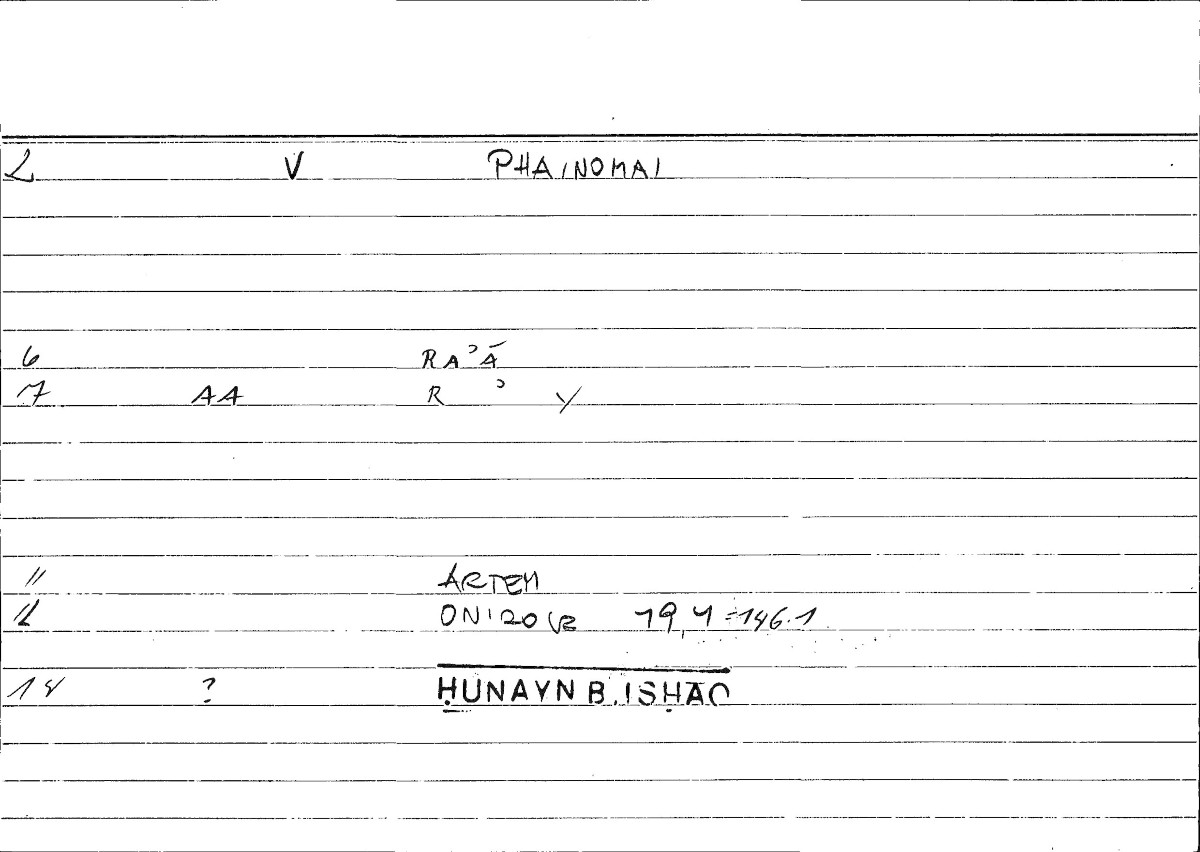 2 V PHAINOMAI
6 RAʾĀ
7 AA R ʾ Y
11 ARTEM
12 ONIROCR 19,4 = 146.1
14 ? ḤUNAYN B. ISḤĀQ